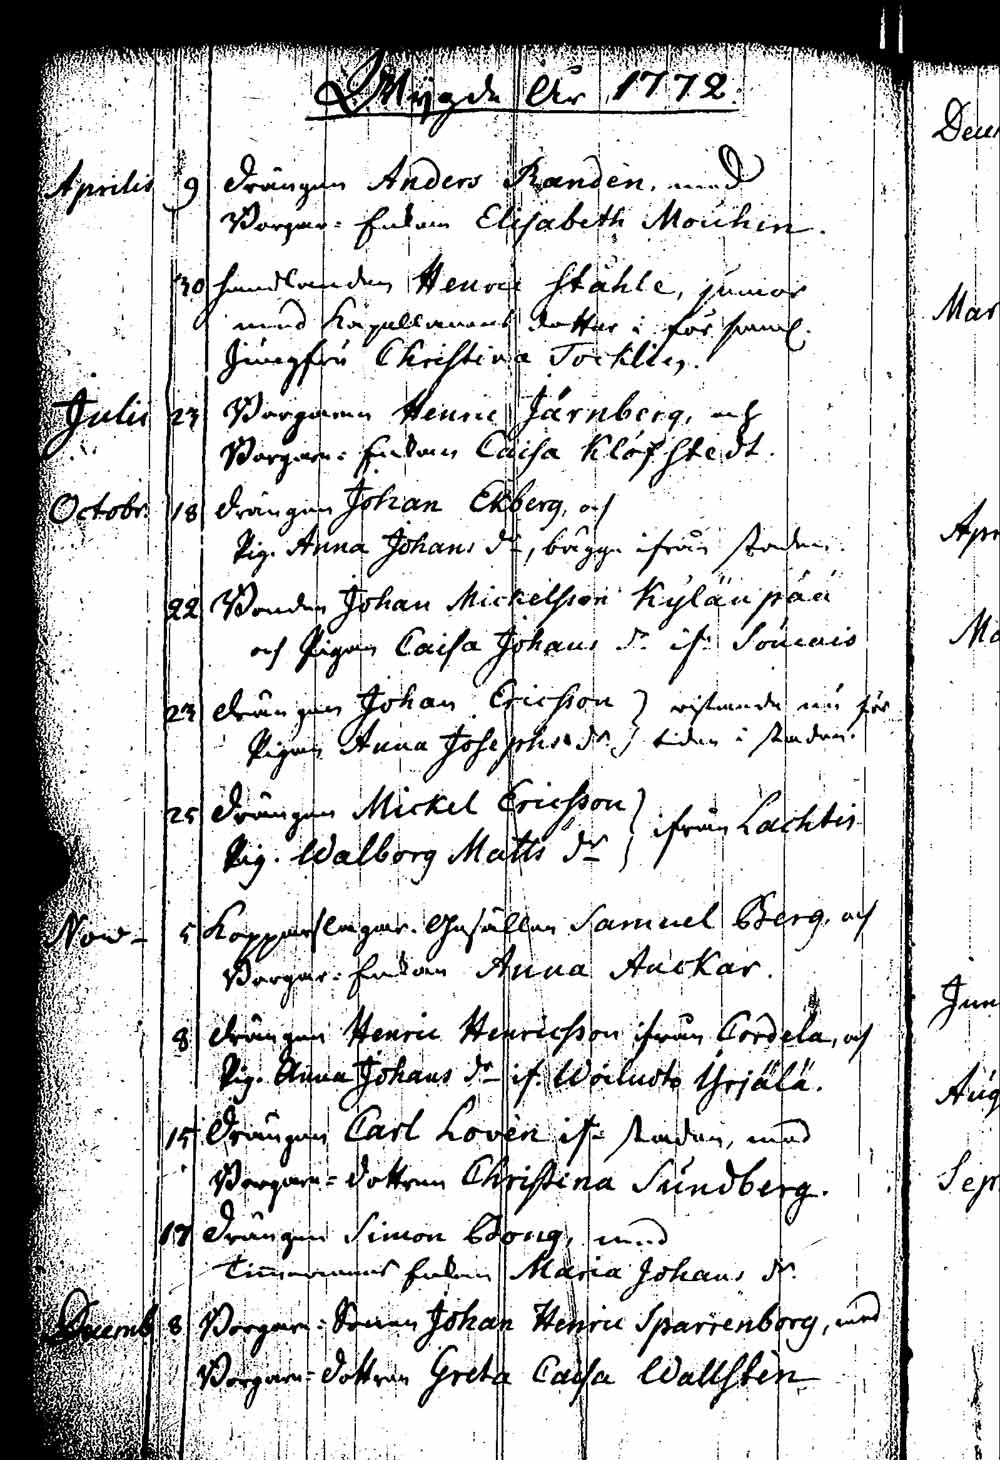 Wigde Åhr 1772.
Decem
Aprilis 9 drängen Anders Randèn, med
Borgar-Enkan Elisabeth Mouhin.
30 handlanden Henric Ståhle, junior
med Kapellanens dotter i
Jungfru Christina Tocklin.
Mar
Julii 23 Borgaren Henric Järnberg, och
Borgare-Enkan Caisa Klöfstedt.
Octobr. 18 drängen Johan Ekberg, och
Pig. Anna Johans dr, bägge ifrån staden.
Apr
22 Bonden Johan Mickelsson Kylänpää
och Pigan Caisa Johans dr if. Soucais
Ma
23 drängen Johan Ericsson } vistande nu för
Pigan Anna Josephs dr } tiden i staden.
25 drängen Mickel Ericsson } ifrån Lachtis
Pig. Walborg Matts dr
Nov- 5 Kopparslagar-Gesällen Samuel Berg, och
Borgar-Enkan Anna Auckar.
Jun
8 drängen Henric Henricsson ifrån Cordela, och
Pig. Anna Johans dr if. Woiluoto Yrjälä.
Aug
15 drängen Carl Lovèn if. staden, med
Borgare-dottren Christina Sundberg.
Sep
17 drängen Simon Bong, med
Timmermans Enkan Maria Johans dr.
Decemb 8 Borgare-Sonen Johan Henric Sparrenborg, med
Borgare-dottren Greta Caisa Wallstèn